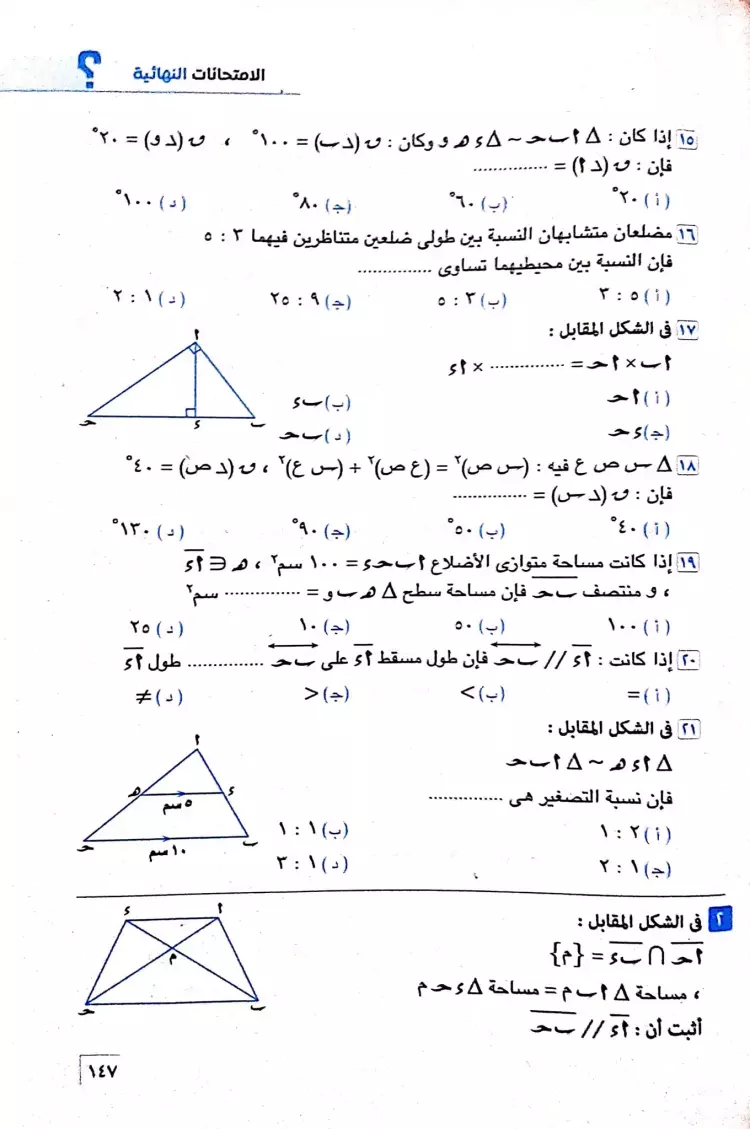 الامتحانات النهائية ؟
١٥ إذا كان : Δ أ ب حـ ~ Δ ء هـ و وكان : ن (د ب) = ١٠٠° ، ن (د و) = ٢٠°
فإن : ن (د أ) = ...............
(أ) ٢٠° (ب) ٦٠° (جـ) ٨٠° (د) ١٠٠°
١٦ مضلعان متشابهان النسبة بين طولى ضلعين متناظرين فيهما ٣ : ٥
فإن النسبة بين محيطيهما تساوى ...............
(أ) ٥ : ٣ (ب) ٣ : ٥ (جـ) ٩ : ٢٥ (د) ١ : ٢
١٧ فى الشكل المقابل :
أ ب × أ حـ = ............... × أ ء
(أ) أ حـ (ب) ب ء
(جـ) ء حـ (د) ب حـ
أ
ب
ء
حـ
١٨ Δ س ص ع فيه : (س ص)² = (ع ص)² + (س ع)² ، ن (د ص) = ٤٠°
فإن : ن (د س) = ...............
(أ) ٤٠° (ب) ٥٠° (جـ) ٩٠° (د) ١٣٠°
١٩ إذا كانت مساحة متوازى الأضلاع أ ب حـ ء = ١٠٠ سم² ، هـ ∈ أ ء
، و منتصف ب حـ فإن مساحة سطح Δ هـ ب و = ............... سم²
(أ) ١٠٠ (ب) ٥٠ (جـ) ١٠ (د) ٢٥
٢٠ إذا كانت : أ ء // ب حـ فإن طول مسقط أ ء على ب حـ ............... طول أ ء
(أ) = (ب) > (جـ) < (د) ≠
٢١ فى الشكل المقابل :
Δ أ ء هـ ~ Δ أ ب حـ
فإن نسبة التصغير هى ...............
(أ) ٢ : ١ (ب) ١ : ١
(جـ) ١ : ٢ (د) ١ : ٣
أ
هـ
ء
٥ سم
حـ
ب
١٠ سم
٢ فى الشكل المقابل :
أ حـ ∩ ب ء = {م}
، مساحة Δ أ ب م = مساحة Δ ء حـ م
أثبت أن : أ ء // ب حـ
ء
أ
م
حـ
ب
١٤٧